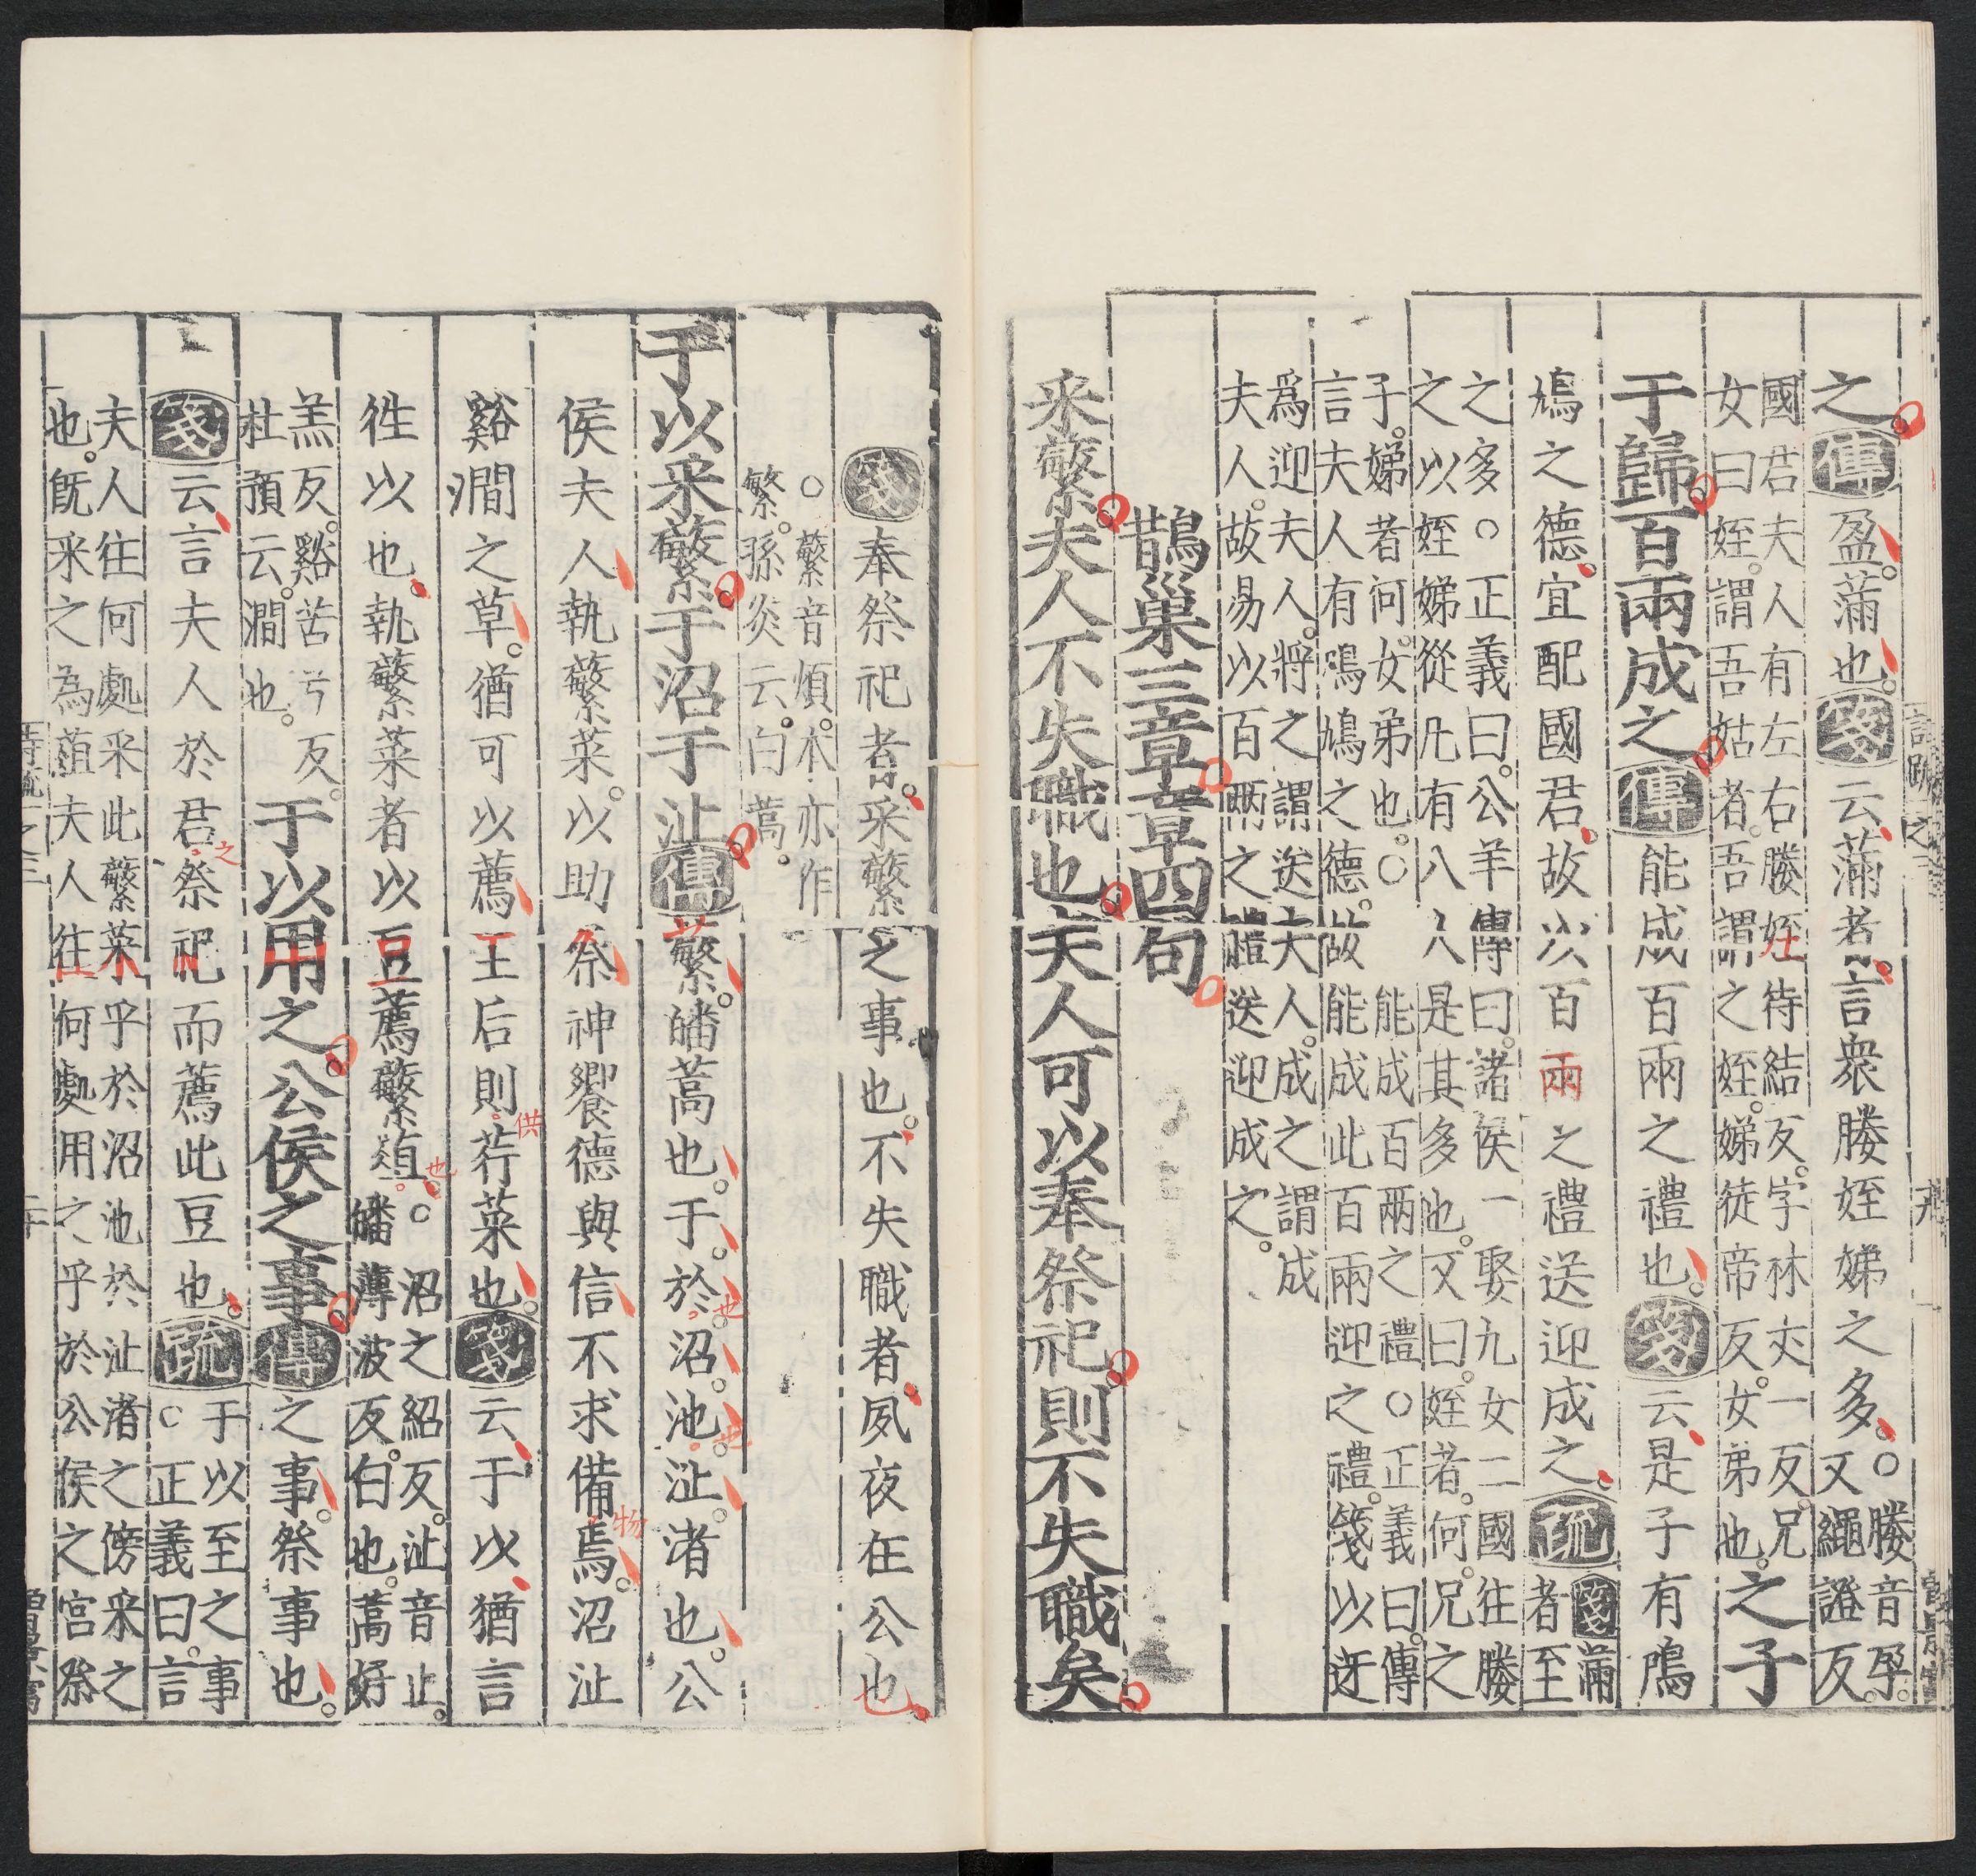 之傳盈滿也箋云滿者言衆媵姪娣之多○媵音孕又繩證反
國君夫人有左右媵姪待結反字林丈一反兄
女曰姪謂吾姑者吾謂之姪娣徒帝反女弟也之子
于歸百兩成之傳能成百兩之禮也箋云是子有鳲
鳩之德宜配國君故以百兩之禮送迎成之疏箋滿者至
之多○正義曰公羊傳曰諸侯一娶九女二國往媵
之以姪娣從凡有八人是其多也又曰姪者何兄之
子娣者何女弟也○能成百兩之禮○正義曰傳
言夫人有鳲鳩之德故能成此百兩迎之禮箋以迓
爲迎夫人將之謂送夫人成之謂成
夫人故易以百兩之禮送迎成之
鵲巢三章章四句
采蘩夫人不失職也夫人可以奉祭祀則不失職矣
箋奉祭祀者采蘩之事也不失職者夙夜在公也
○蘩音煩本亦作
繁孫炎云白蒿
于以采蘩于沼于沚傳蘩皤蒿也于於也沼池也沚渚也公
侯夫人執蘩菜以助祭神饗德與信不求備焉物沼沚
谿澗之草猶可以薦王后則供荇菜也箋云于以猶言
徃以也執蘩菜者以豆薦蘩葅也○沼之紹反沚音止皤薄波反白也蒿好
羔反谿苦兮反
杜預云澗也于以用之公侯之事傳之事祭事也
箋云言夫人於君之祭祀而薦此豆也疏于以至之事○正義曰言
夫人往何處采此蘩菜乎於沼池於沚渚之傍采之
也旣采之為葅夫人往何處用之乎於公侯之宮祭